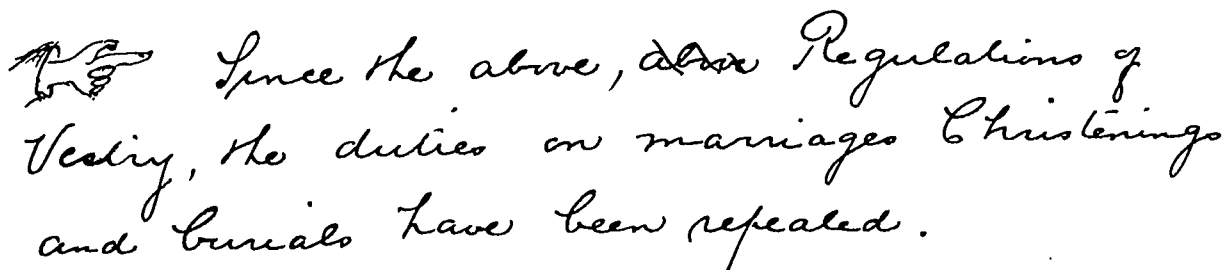 Since the above, above Regulations of
Vestry, the duties on marriages Christenings
and burials have been repealed.